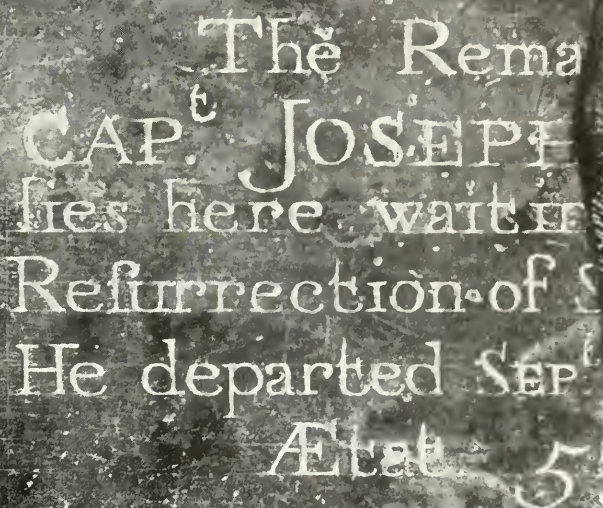 The Rema
CAP.ᵗ JOSEPH
lies here waitin
Reſurrection of S
He departed SEPᵗ
Ætat 5